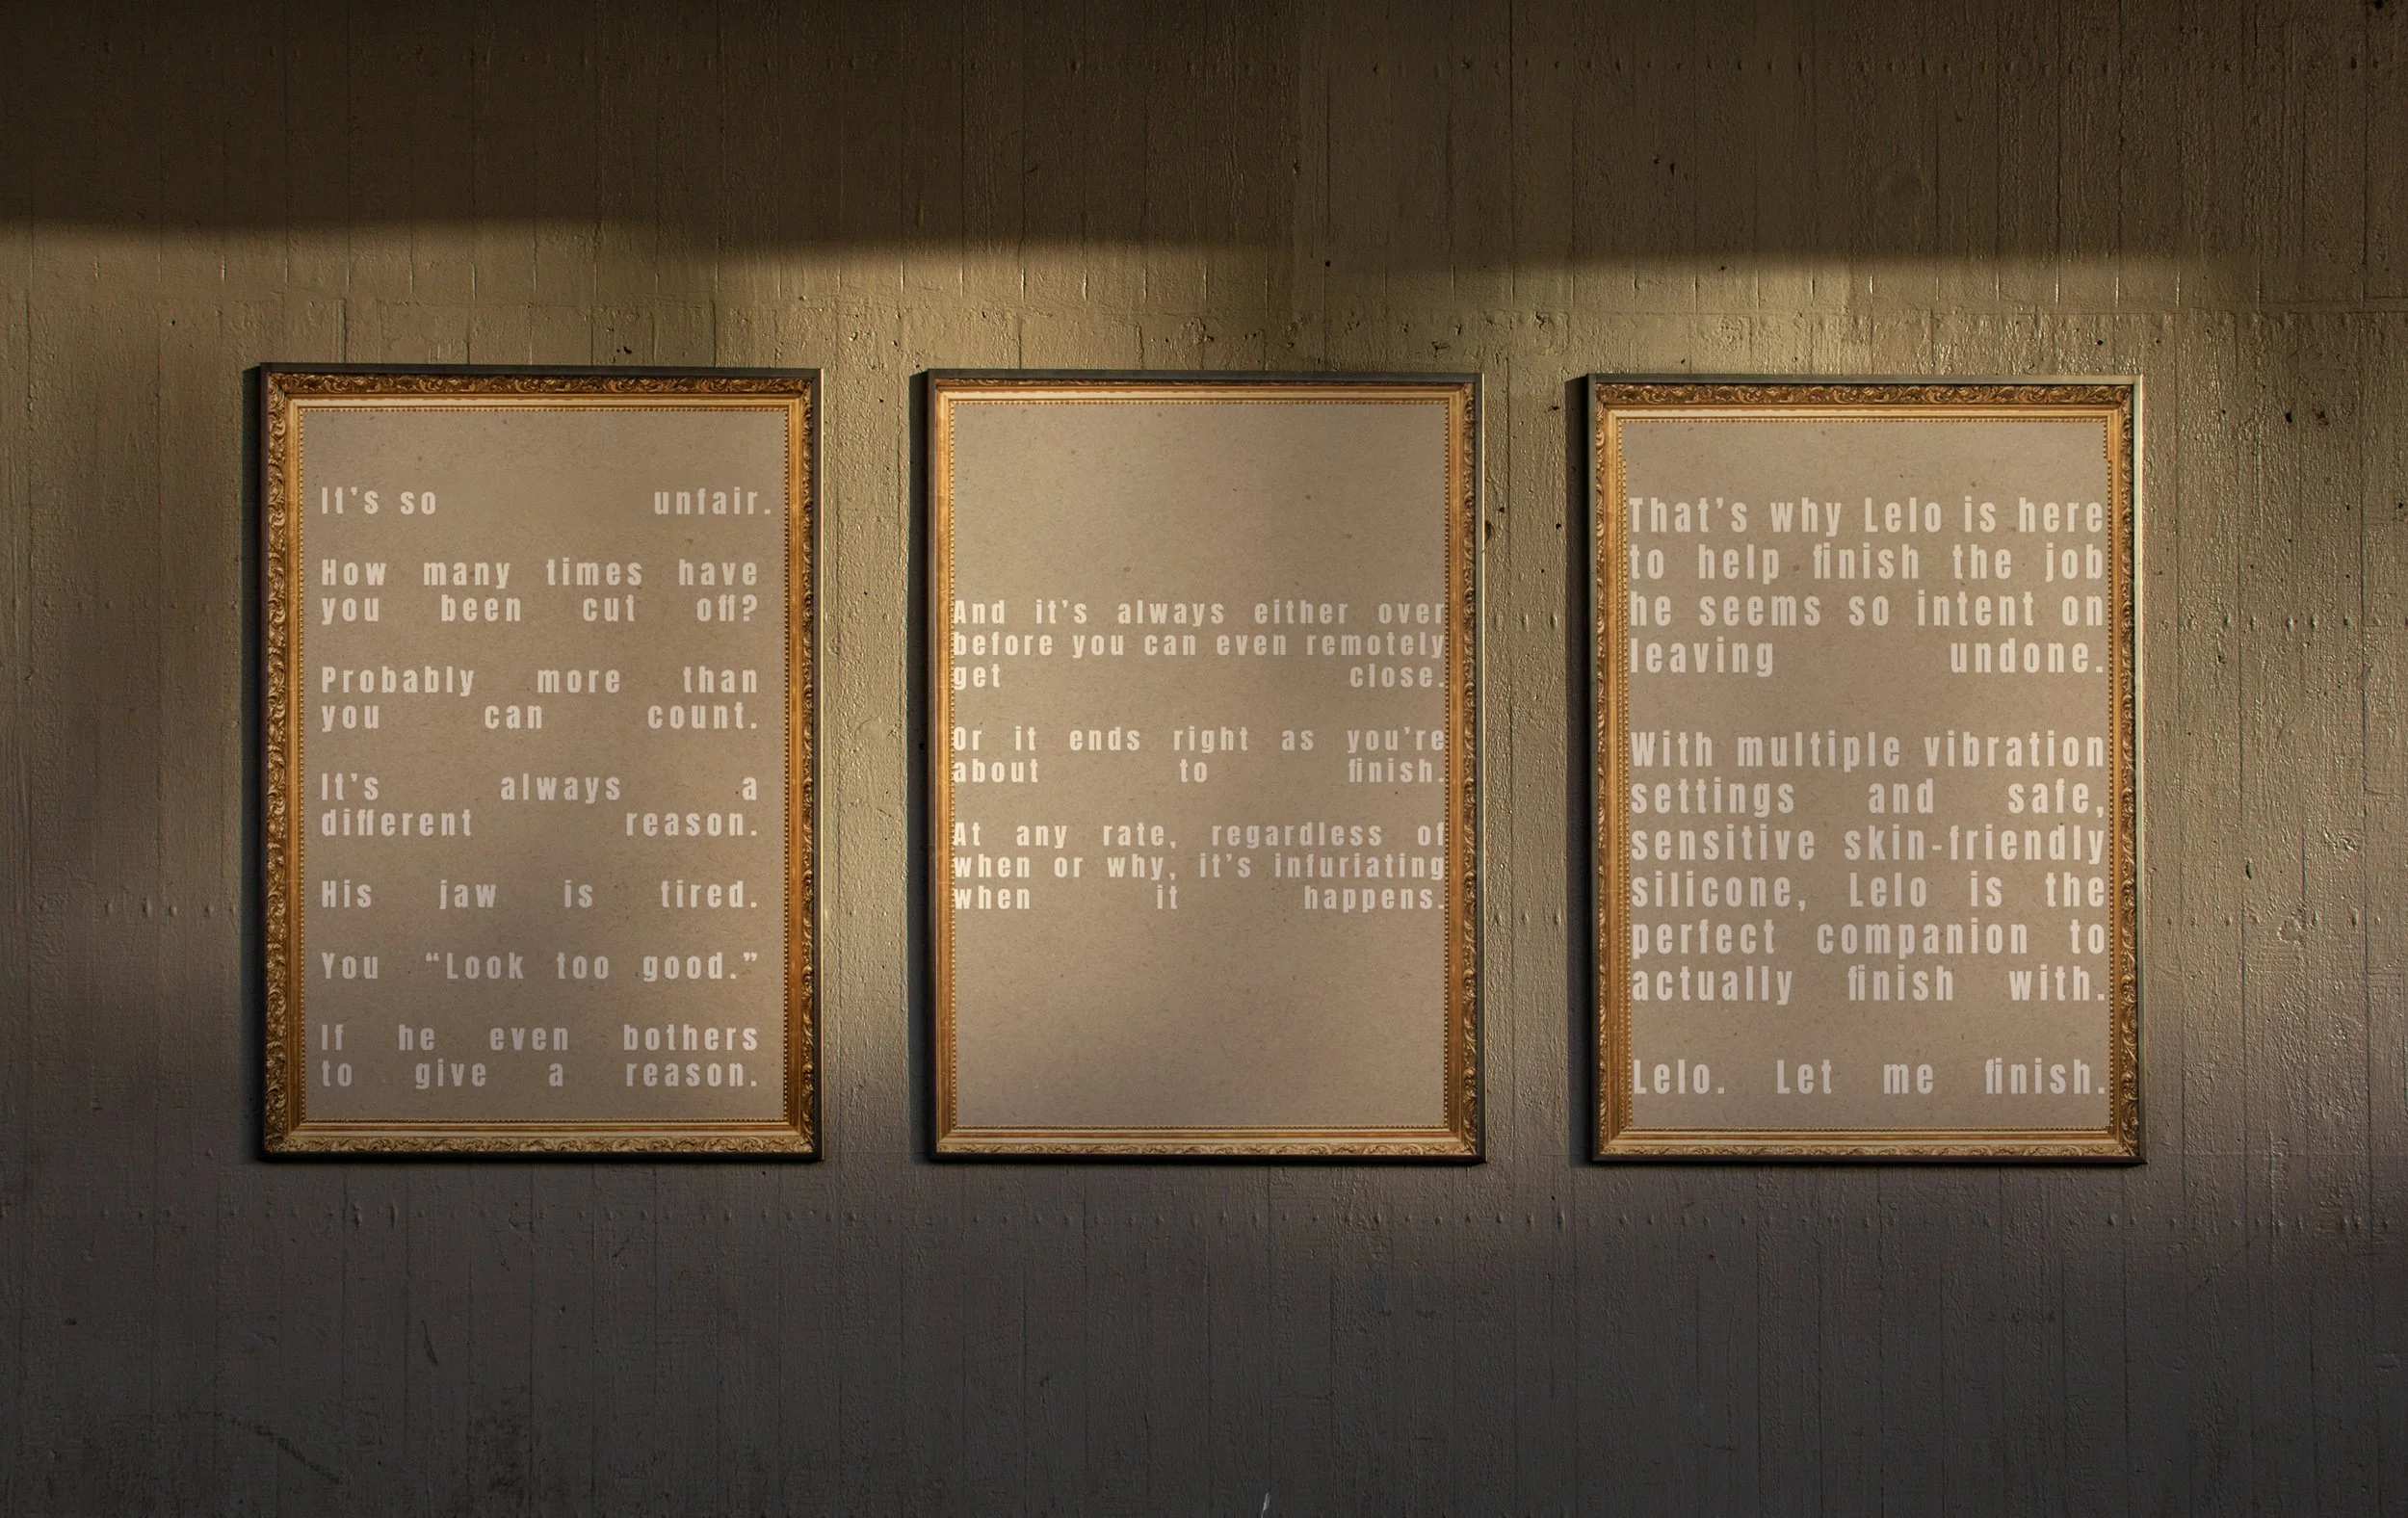 It's so unfair.
How many times have
you been cut off?
Probably more than
you can count.
It's always a
different reason.
His jaw is tired.
You “Look too good.”
If he even bothers
to give a reason.
And it's always either over
before you can even remotely
get close.
Or it ends right as you're
about to finish.
At any rate, regardless of
when or why, it's infuriating
when it happens.
That's why Lelo is here
to help finish the job
he seems so intent on
leaving undone.
With multiple vibration
settings and safe,
sensitive skin-friendly
silicone, Lelo is the
perfect companion to
actually finish with.
Lelo. Let me finish.